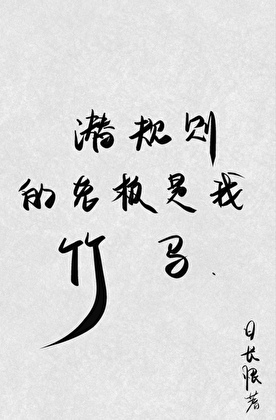 潜规则
的老板是我
竹马.
日长恨著